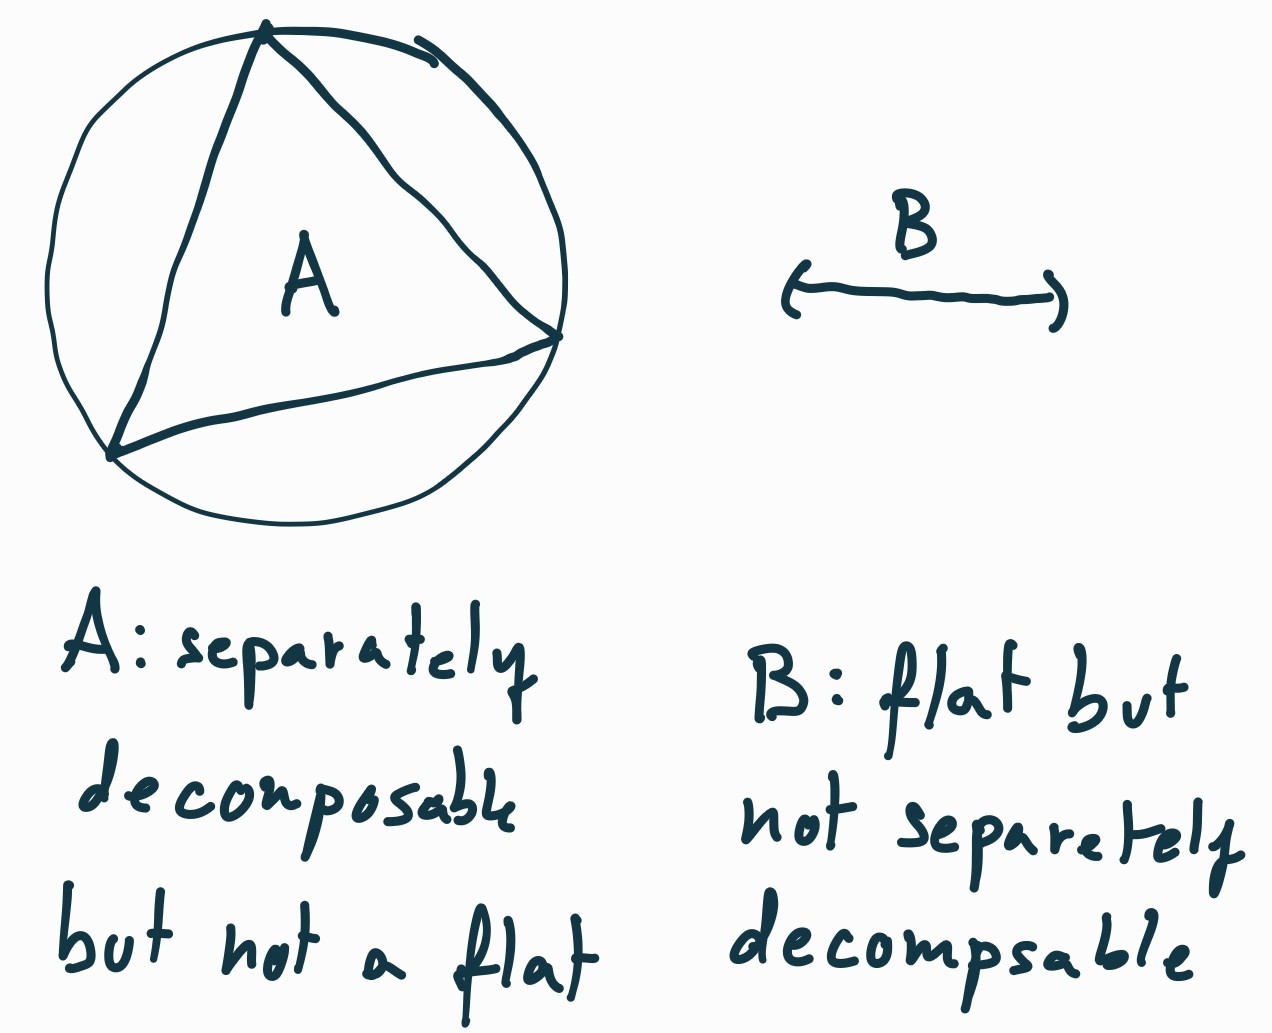 A
B
A: separately
decomposable
but not a flat
B: flat but
not separetely
decompsable